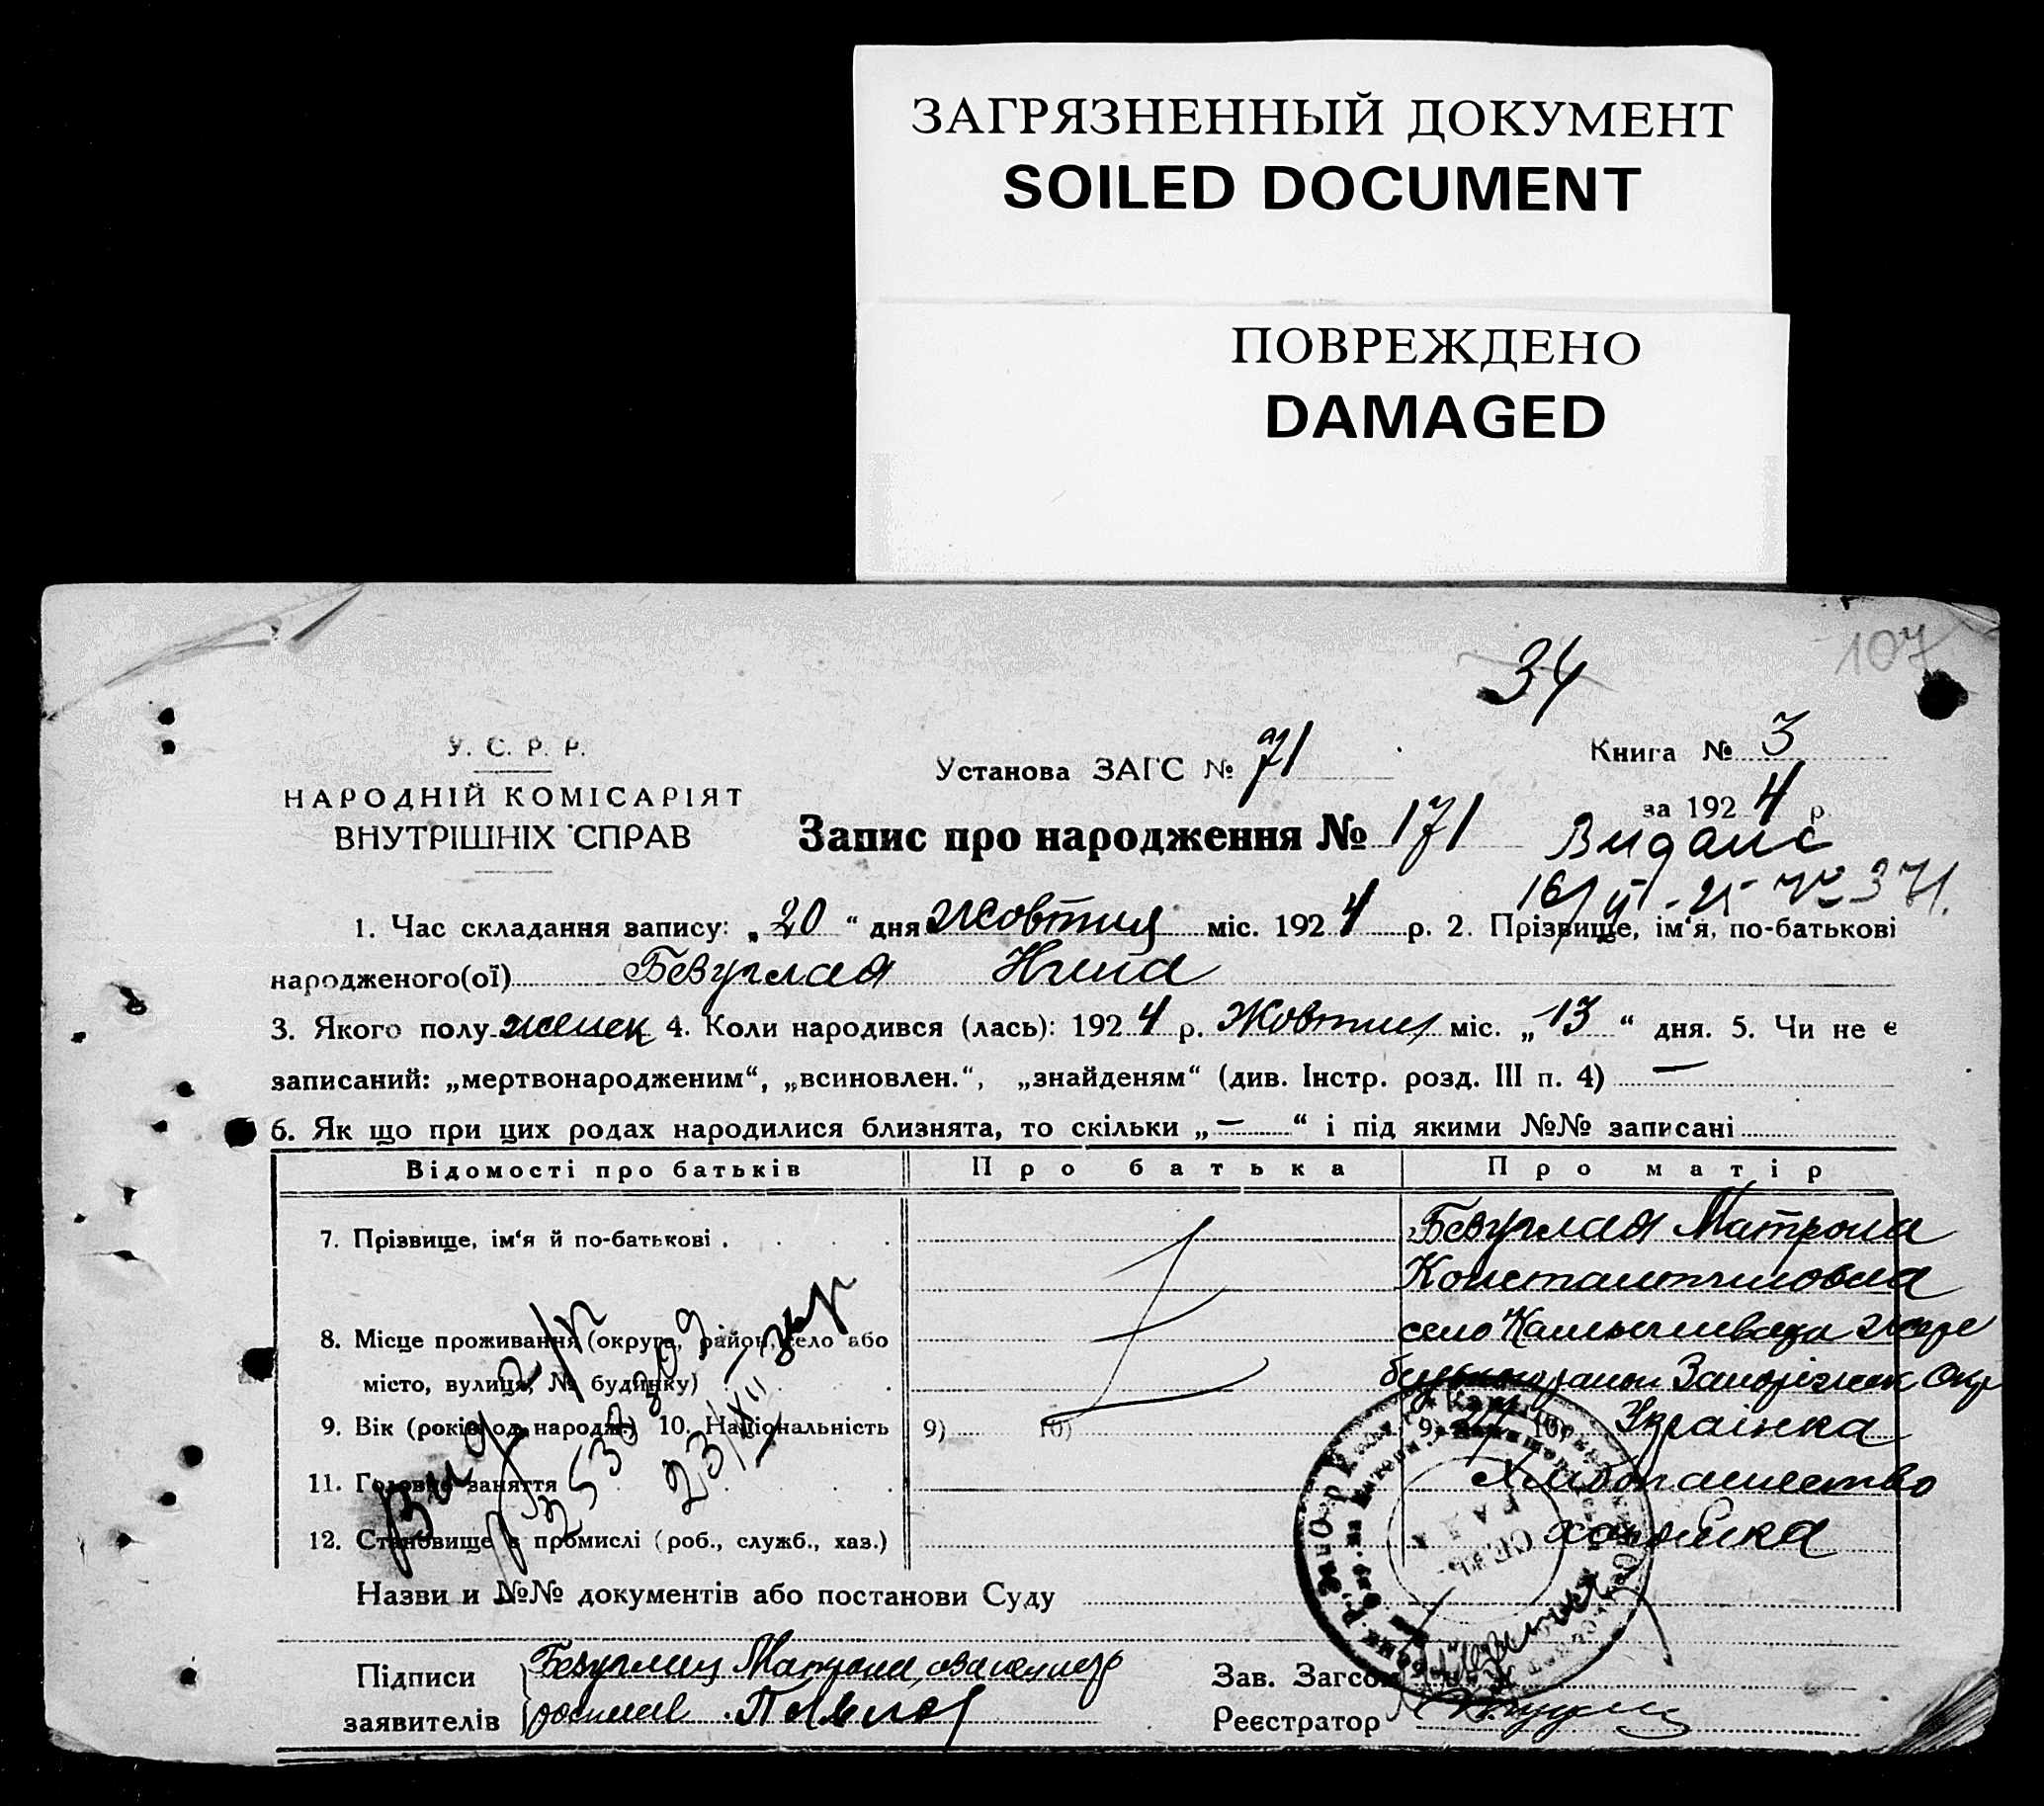 ЗАГРЯЗНЕННЫЙ ДОКУМЕНТ
SOILED DOCUMENT
ПОВРЕЖДЕНО
DAMAGED
34
107
У. С. Р. Р.
НАРОДНІЙ КОМІСАРІЯТ
ВНУТРІШНІХ СПРАВ
Установа ЗАГС № 71
Книга № 3
за 1924 р.
Запис про народження № 171
Видано
16/VI-25 № 371.
1. Час складання запису: „20“ дня Жовтня міс. 1924 р. 2. Прізвище, ім‘я, по-батькові
народженого(ої) Безуглая Нина
3. Якого полу женск 4. Коли народився (лась): 1924 р. Жовтня міс. „13“ дня. 5. Чи не є
записаний: „мертвонародженим“, „всиновлен.“, „знайденям“ (див. Інстр. розд. III п. 4) —
6. Як що при цих родах народилися близнята, то скільки „—“ і під якими №№ записані
Відомості про батьків Про батька Про матір
7. Прізвище, ім‘я й по-батькові . Безуглая Матрона
Константиновна
8. Місце проживання (округа, район, село або село
місто, вулиця, № будинку) Запоріжск Окр
9. Вік (років од народж.) 10. Національність 9) 10) 9) 10) Українка
11. Головне заняття Хлибопашество
12. Становище в промислі (роб., служб., хаз.) хозяйка
Назви и №№ документів або постанови Суду
Підписи Безуглая Матрона
заявителів
Зав. Загсом
Реєстратор